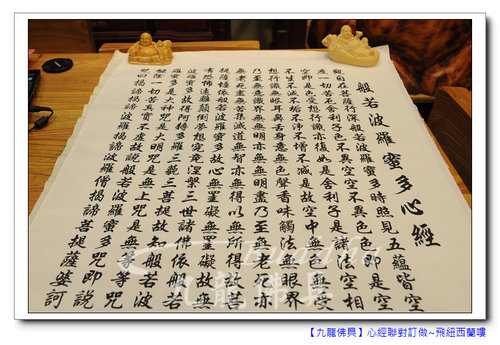 般若波羅蜜多心經
觀自在菩薩行深般若波羅蜜多時照見五蘊皆空
度一切苦厄舍利子色不異空空不異色色即是空
空即是色受想行識亦復如是舍利子是諸法空相
不生不滅不垢不淨不增不減是故空中無色無受
想行識無眼耳鼻舌身意無色聲香味觸法無眼界
乃至無意識界無無明亦無無明盡乃至無老死亦
無老死盡無苦集滅道無智亦無得以無所得故菩
提薩埵依般若波羅蜜多故心無罣礙無罣礙故無
有恐怖遠離顛倒夢想究竟涅槃三世諸佛依般若
波羅蜜多故得阿耨多羅三藐三菩提故知般若波
羅蜜多是大神咒是大明咒是無上咒是無等等咒
能除一切苦真實不虛故說般若波羅蜜多咒即說
咒曰揭諦揭諦波羅揭諦波羅僧揭諦菩提薩婆訶
九龍佛具
【九龍佛具】心經聯對訂做~飛紐西蘭嘍